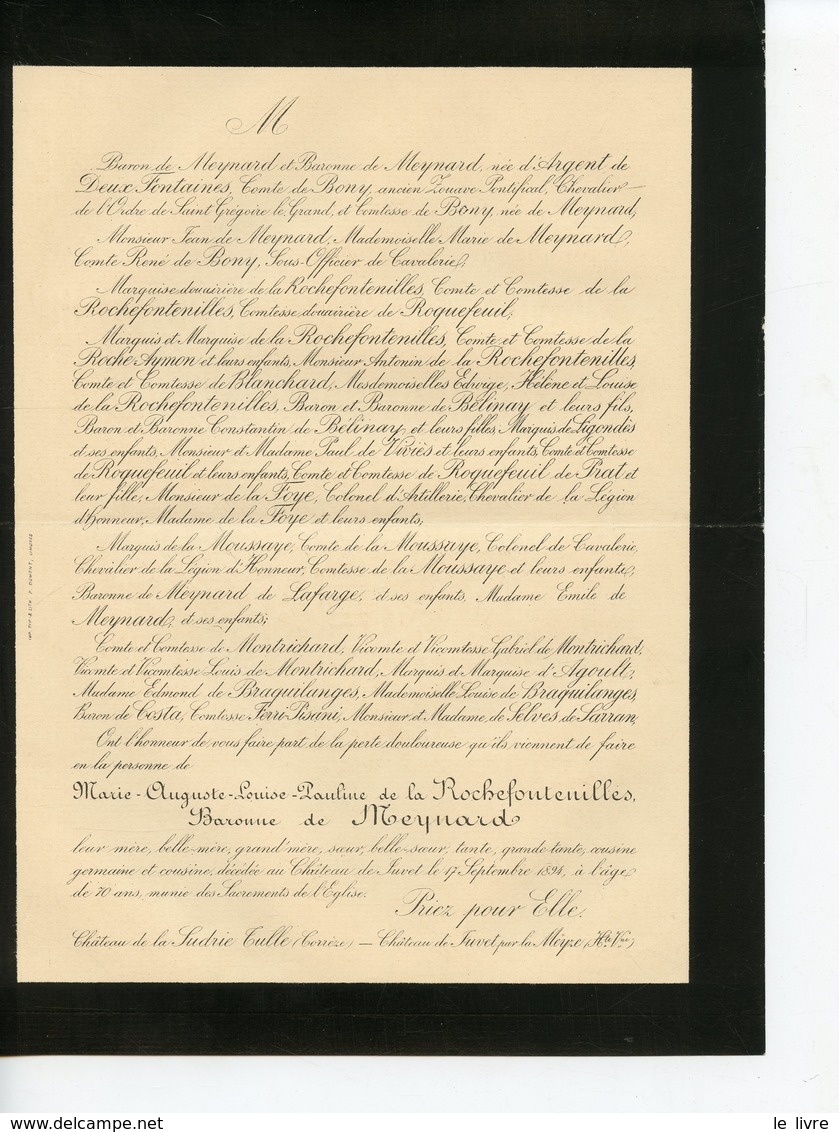 M
Baron de Meynard et Baronne de Meynard, née d'Argent de
Deux Fontaines, Comte de Bony, ancien Zouave Pontifical, Chevalier
de l'Ordre de Saint Grégoire le Grand, et Comtesse de Bony, née de Meynard,
Monsieur Jean de Meynard, Mademoiselle Marie de Meynard,
Comte René de Bony, Sous-Officier de Cavalerie;
Marquise douairière de la Rochefontenilles, Comte et Comtesse de la
Rochefontenilles, Comtesse douairière de Roquefeuil;
Marquis et Marquise de la Rochefontenilles, Comte et Comtesse de la
Roche Aymon et leurs enfants, Monsieur Antonin de la Rochefontenilles,
Comte et Comtesse de Blanchard, Mesdemoiselles Edwige, Hélène et Louise
de la Rochefontenilles, Baron et Baronne de Bélinay et leurs fils,
Baron et Baronne Constantin de Bélinay, et leurs filles, Marquis de Ligondès
et ses enfants, Monsieur et Madame Paul de Viviès et leurs enfants, Comte et Comtesse
de Roquefeuil et leurs enfants, Comte et Comtesse de Roquefeuil de Prat et
leur fille, Monsieur de la Foye, Colonel d'Artillerie, Chevalier de la Légion
d'honneur, Madame de la Foye et leurs enfants;
Marquis de la Moussaye, Comte de la Moussaye, Colonel de Cavalerie,
Chevalier de la Légion d'Honneur, Comtesse de la Moussaye et leurs enfants,
Baronne de Meynard de Lafarge, et ses enfants, Madame Emile de
Meynard, et ses enfants;
Comte et Comtesse de Montrichard, Vicomte et Vicomtesse Gabriel de Montrichard,
Vicomte et Vicomtesse Louis de Montrichard, Marquis et Marquise d'Agoult,
Madame Edmond de Braquilanges, Mademoiselle Louise de Braquilanges,
Baron de Costa, Comtesse Ferri-Pisani, Monsieur et Madame de Selves de Sarran,
Ont l'honneur de vous faire part de la perte douloureuse qu'ils viennent de faire
en la personne de
Marie-Auguste-Louise-Pauline de la Rochefontenilles,
Baronne de Meynard
leur mère, belle-mère, grand'mère, sœur, belle-sœur, tante, grande-tante, cousine
germaine et cousine, décédée au Château de Juvet le 17 Septembre 1894, à l'âge
de 70 ans, munie des Sacrements de l'Eglise.
Priez pour Elle.
Château de la Sudrie Tulle (Corrèze) — Château de Juvet par la Meyze (Hte Vne)
le livre